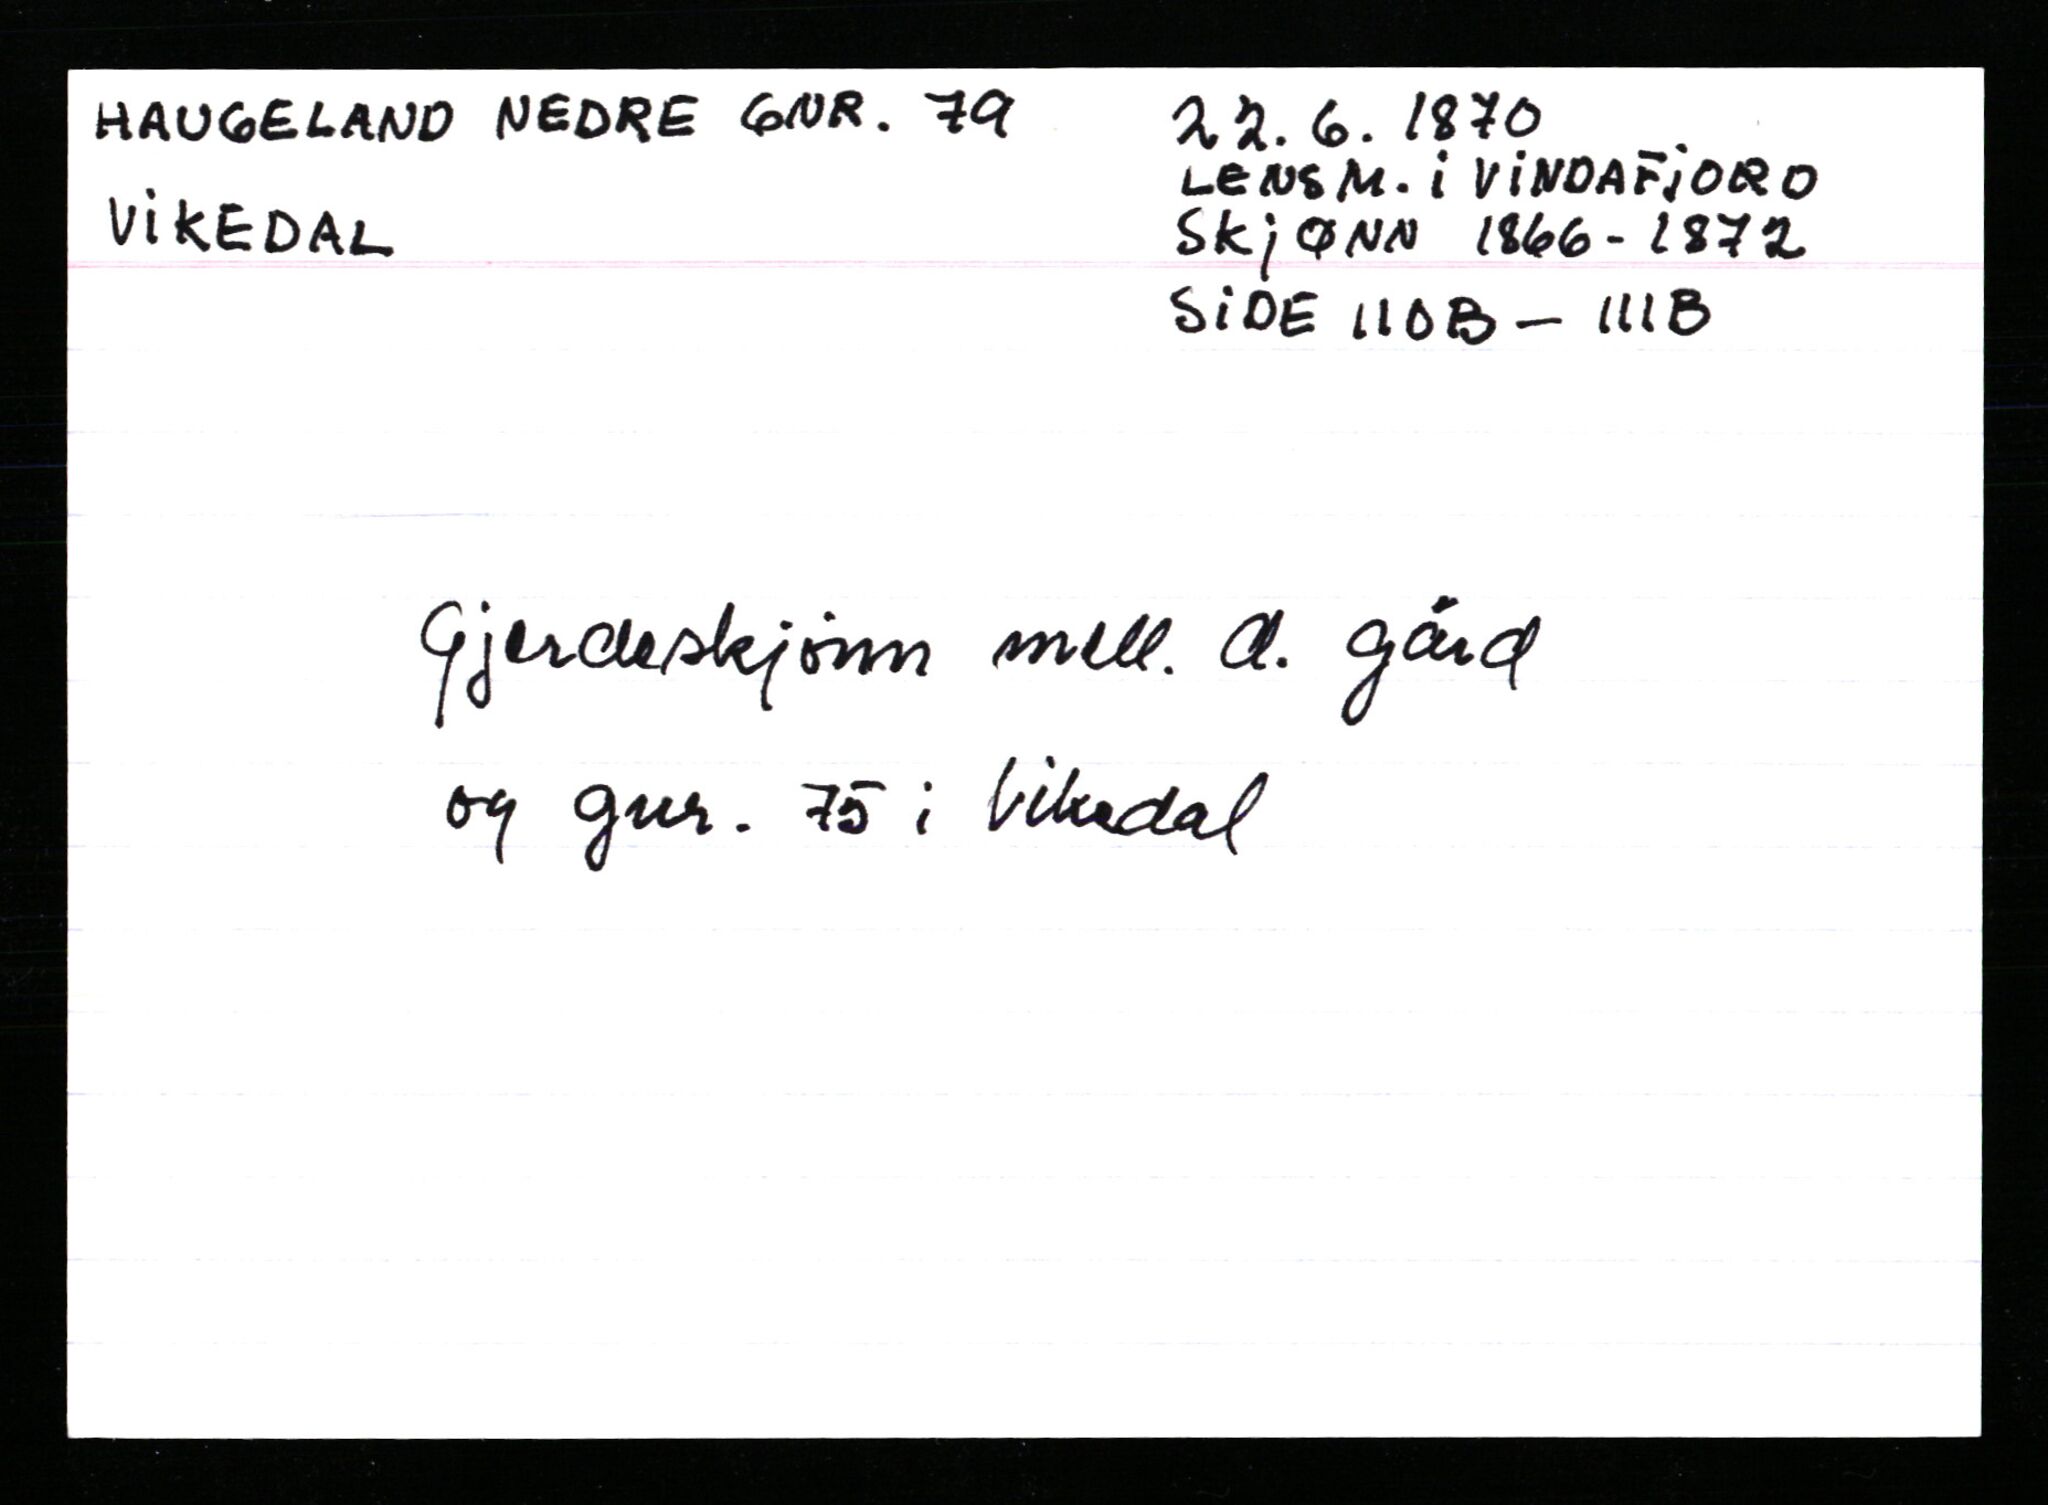 HAUGELAND NEDRE GNR. 79
VIKEDAL
22.6.1870
LENSM. i VINDAFJORD
SKJØNN 1866-1872
SIDE 110B - 111B
Gjerdeskjønn mell. d. gård
og gnr. 75 i Vikedal